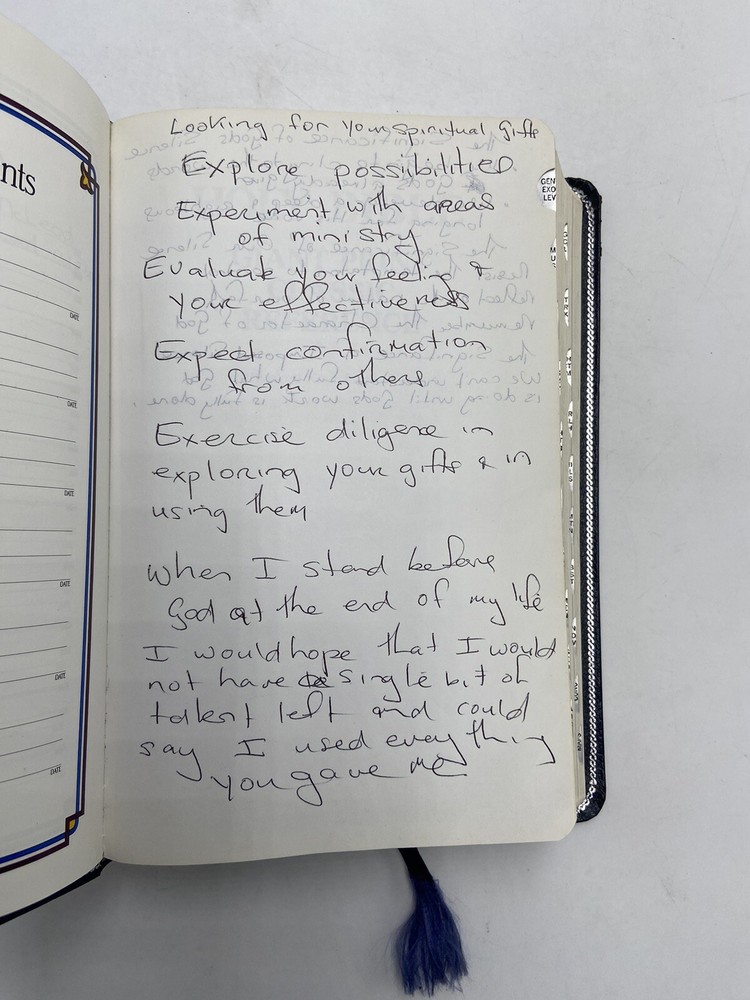 nts
DATE
DATE
DATE
DATE
DATE
DATE
Looking for your spiritual gifts
Explore possiibilities
Experiment with areas
of ministry
Evaluate your feeling &
your effectiveness
Expect confirmation
from others
Exercise diligence in
exploring your gifts & in
using them
when I stand before
God at the end of my life
I would hope that I would
not have a single bit of
talent left and could
say I used everything
you gave me
GEN
EXO
LEV